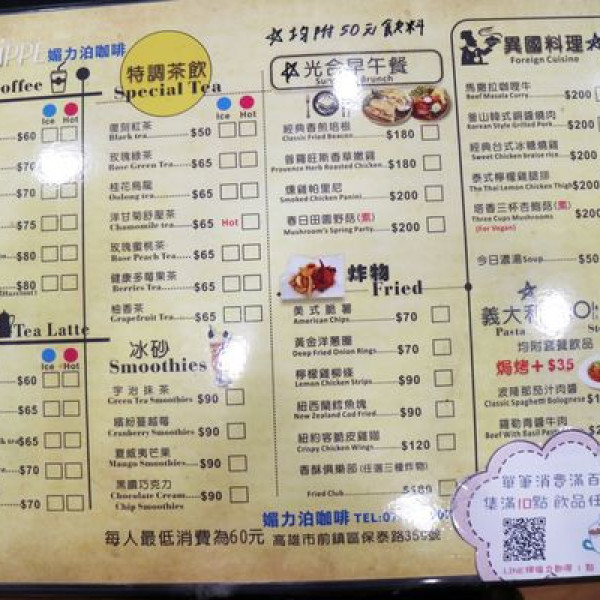 媚力泊咖啡
offee
Ice Hot
$60
$70
$70
$75
$80
$80
Tea Latte
Ice Hot
$60
$65
$65
$70
$70
特調茶飲
Special Tea
Ice Hot
復刻紅茶
Black tea $50
玫瑰綠茶
Rose Green Tea $65
桂花烏龍
Oolong tea $65
洋甘菊舒壓茶
Chamomile tea $65 Hot
玫瑰蜜桃茶
Rose Peach Tea $65
健康多莓果茶
Berries Tea $65
柚香茶
Grapefruit Tea $65
冰砂
Smoothies
宇治抹茶
Green Tea Smoothies $90
繽紛蔓越莓
Cranberry Smoothies $90
夏威夷芒果
Mango Smoothies $90
黑鑽巧克力
Chocolate Cream $90
Chip Smoothies
☆均附50元飲料
☆光合早午餐
Brunch
經典香煎培根
Classic Fried Beacon $180
普羅旺斯香草嫩雞
Provence Herb Roasted Chicken $180
燻雞帕里尼
Smoked Chicken Panini $200
春日田園野菇(素)
Mushroom's Spring Party $200
炸物
Fried
美式脆薯
American Chips $70
黃金洋蔥圈
Deep Fried Onion Rings $70
檸檬雞柳條
Lemon Chicken Strips $90
紐西蘭鱈魚塊
New Zealand Cod Fried $90
紐約客脆皮雞翅
Crispy Chicken Wings $120
香酥俱樂部(任選三種炸物)
Fried Club
異國料理☆
Foreign Cuisine
馬撒拉咖哩牛
Beef Masala Curry $200
釜山韓式銅醬燒肉
Korean Style Grilled Pork $200
經典台式冰糖燒雞
Sweet Chicken braise rice $200
泰式檸檬雞腿排
The Thai Lemon Chicken Thigh $200
塔香三杯杏鮑菇(素)
Three Cups Mushrooms $200
(For Vegan)
今日濃湯 Soup $50
義大利
Pasta
均附套餐飲品
焗烤+$35
波隆那茄汁肉醬
Classic Spaghetti Bolognese
羅勒青醬牛肉
Beef With Basil
單筆消費滿百
集滿10點 飲品任
媚力泊咖啡 TEL:07
每人最低消費為60元 高雄市前鎮區保泰路